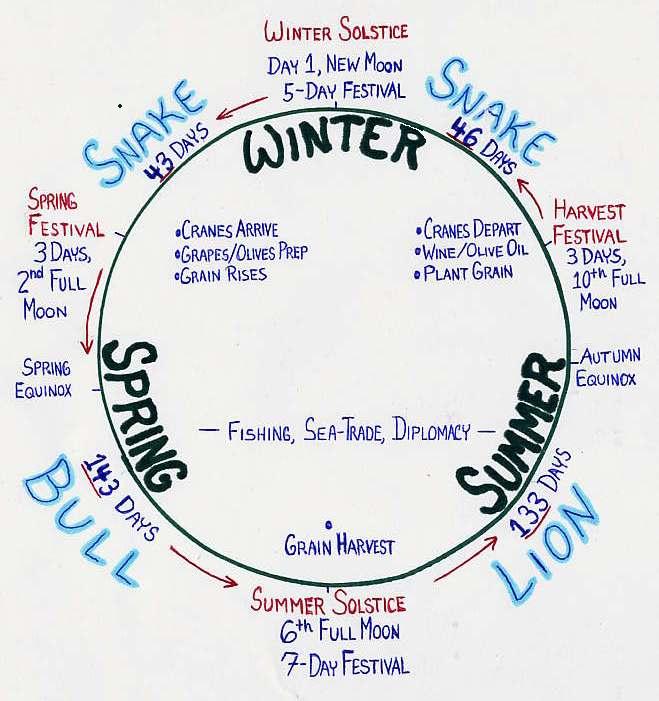 WINTER SOLSTICE
DAY 1, NEW MOON
5-DAY FESTIVAL
SNAKE
43 DAYS
WINTER
SNAKE
46 DAYS
SPRING
FESTIVAL
3 DAYS,
2nd FULL
MOON
•CRANES ARRIVE
•GRAPES/OLIVES PREP
•GRAIN RISES
•CRANES DEPART
•WINE/OLIVE OIL
•PLANT GRAIN
HARVEST
FESTIVAL
3 DAYS,
10th FULL
MOON
SPRING
EQUINOX
SPRING
AUTUMN
EQUINOX
SUMMER
— FISHING, SEA-TRADE, DIPLOMACY —
BULL
143 DAYS
133 DAYS
LION
•
GRAIN HARVEST
SUMMER SOLSTICE
6th FULL MOON
7-DAY FESTIVAL